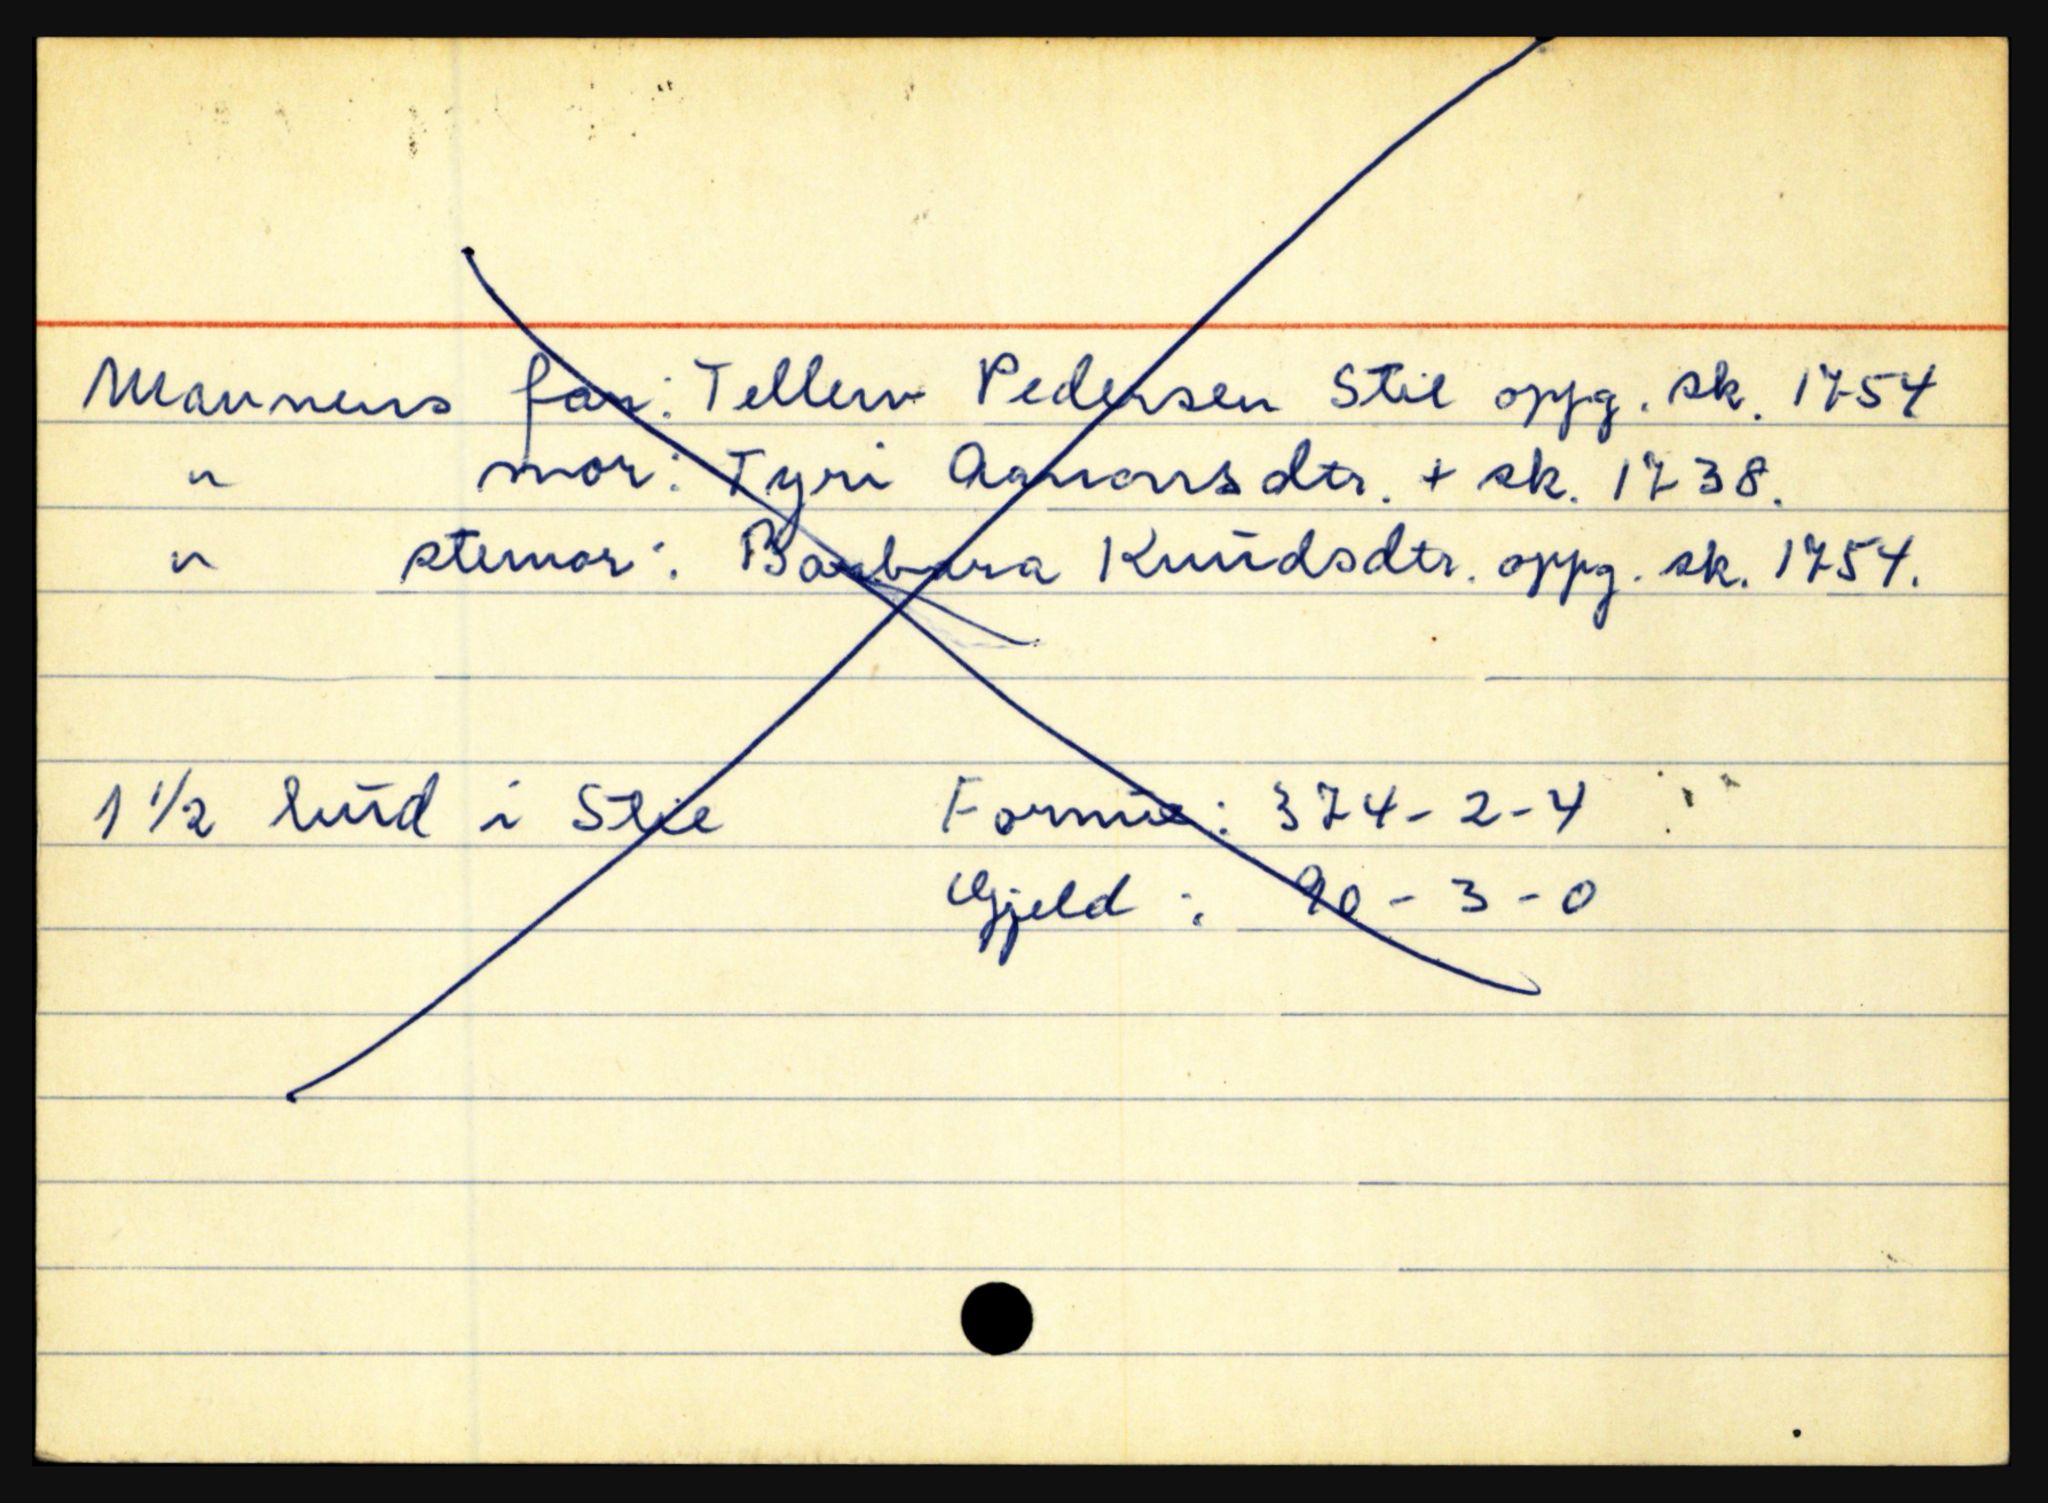 Mannens far: Tellew Pedersen Stie oppg. sk. 1754
" mor: Tyri Aanonsdtr. + sk. 1738.
" stemor: Barbara Knudsdtr. oppg. sk. 1754.
1 1/2 hud i Stie Formue: 374-2-4
Gjeld: 90-3-0